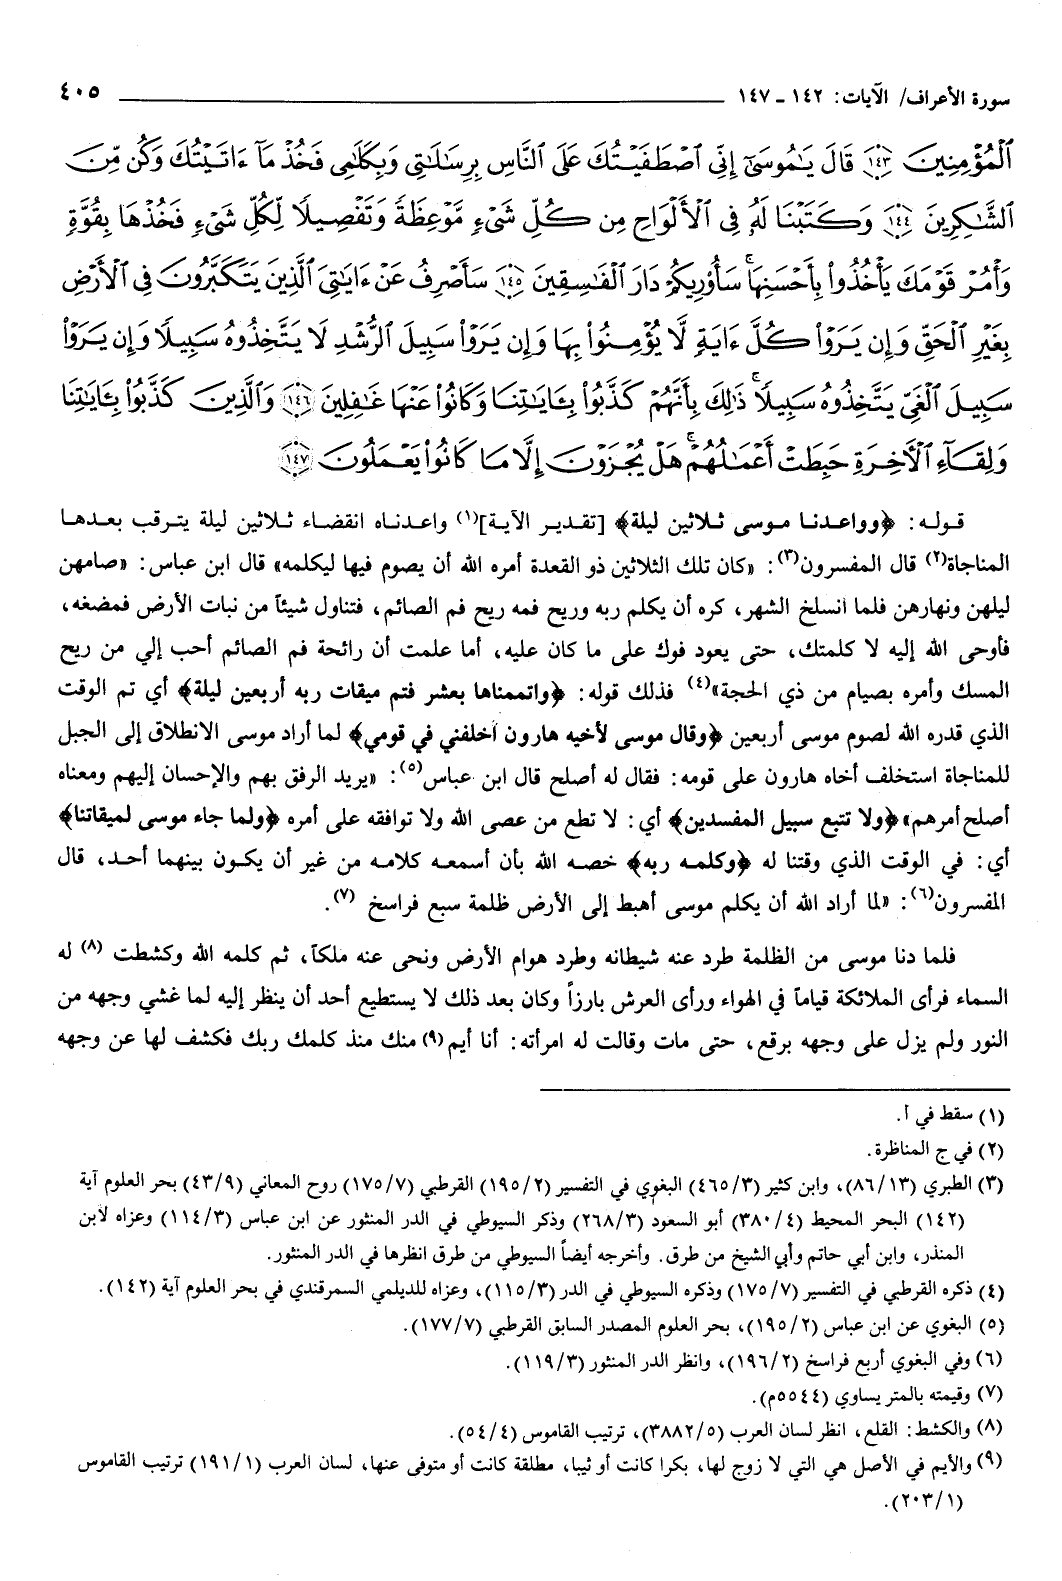 سورة الأعراف/ الآيات: ١٤٢ ـ ١٤٧ ٤٠٥
ٱلْمُؤْمِنِينَ ١٤٣ قَالَ يَٰمُوسَىٰٓ إِنِّى ٱصْطَفَيْتُكَ عَلَى ٱلنَّاسِ بِرِسَٰلَٰتِى وَبِكَلَٰمِى فَخُذْ مَآ ءَاتَيْتُكَ وَكُن مِّنَ
ٱلشَّٰكِرِينَ ١٤٤ وَكَتَبْنَا لَهُۥ فِى ٱلْأَلْوَاحِ مِن كُلِّ شَىْءٍ مَّوْعِظَةً وَتَفْصِيلًا لِّكُلِّ شَىْءٍ فَخُذْهَا بِقُوَّةٍ
وَأْمُرْ قَوْمَكَ يَأْخُذُوا۟ بِأَحْسَنِهَا ۚ سَأُو۟رِيكُمْ دَارَ ٱلْفَٰسِقِينَ ١٤٥ سَأَصْرِفُ عَنْ ءَايَٰتِىَ ٱلَّذِينَ يَتَكَبَّرُونَ فِى ٱلْأَرْضِ
بِغَيْرِ ٱلْحَقِّ وَإِن يَرَوْا۟ كُلَّ ءَايَةٍ لَّا يُؤْمِنُوا۟ بِهَا وَإِن يَرَوْا۟ سَبِيلَ ٱلرُّشْدِ لَا يَتَّخِذُوهُ سَبِيلًا وَإِن يَرَوْا۟
سَبِيلَ ٱلْغَىِّ يَتَّخِذُوهُ سَبِيلًا ۚ ذَٰلِكَ بِأَنَّهُمْ كَذَّبُوا۟ بِـَٔايَٰتِنَا وَكَانُوا۟ عَنْهَا غَٰفِلِينَ ١٤٦ وَٱلَّذِينَ كَذَّبُوا۟ بِـَٔايَٰتِنَا
وَلِقَآءِ ٱلْءَاخِرَةِ حَبِطَتْ أَعْمَٰلُهُمْ ۚ هَلْ يُجْزَوْنَ إِلَّا مَا كَانُوا۟ يَعْمَلُونَ ١٤٧
قوله: ﴿وواعدنا موسى ثلاثين ليلة﴾ [تقدير الآية](١) واعدناه انقضاء ثلاثين ليلة يترقب بعدها
المناجاة(٢) قال المفسرون(٣): «كان تلك الثلاثين ذو القعدة أمره الله أن يصوم فيها ليكلمه» قال ابن عباس: «صامهن
ليلهن ونهارهن فلما انسلخ الشهر، كره أن يكلم ربه وريح فمه ريح فم الصائم، فتناول شيئاً من نبات الأرض فمضغه،
فأوحى الله إليه لا كلمتك، حتى يعود فوك على ما كان عليه، أما علمت أن رائحة فم الصائم أحب إلي من ريح
المسك وأمره بصيام من ذي الحجة»(٤) فذلك قوله: ﴿واتممناها بعشر فتم ميقات ربه أربعين ليلة﴾ أي تم الوقت
الذي قدره الله لصوم موسى أربعين ﴿وقال موسى لأخيه هارون أخلفني في قومي﴾ لما أراد موسى الانطلاق إلى الجبل
للمناجاة استخلف أخاه هارون على قومه: فقال له أصلح قال ابن عباس(٥): «يريد الرفق بهم والإحسان إليهم ومعناه
أصلح أمرهم» ﴿ولا تتبع سبيل المفسدين﴾ أي: لا تطع من عصى الله ولا توافقه على أمره ﴿ولما جاء موسى لميقاتنا﴾
أي: في الوقت الذي وقتنا له ﴿وكلمه ربه﴾ خصه الله بأن أسمعه كلامه من غير أن يكون بينهما أحد، قال
المفسرون(٦): «لما أراد الله أن يكلم موسى أهبط إلى الأرض ظلمة سبع فراسخ (٧).
فلما دنا موسى من الظلمة طرد عنه شيطانه وطرد هوام الأرض ونحى عنه ملكآ، ثم كلمه الله وكشطت (٨) له
السماء فرأى الملائكة قياماً في الهواء ورأى العرش بارزاً وكان بعد ذلك لا يستطيع أحد أن ينظر إليه لما غشي وجهه من
النور ولم يزل على وجهه برقع، حتى مات وقالت له امرأته: أنا أيم (٩) منك منذ كلمك ربك فكشف لها عن وجهه
(١) سقط في أ.
(٢) في ج المناظرة.
(٣) الطبري (٨٦/١٣)، وابن كثير (٤٦٥/٣) البغوي في التفسير (١٩٥/٢) القرطبي (١٧٥/٧) روح المعاني (٤٣/٩) بحر العلوم آية
(١٤٢) البحر المحيط (٣٨٠/٤) أبو السعود (٢٦٨/٣) وذكر السيوطي في الدر المنثور عن ابن عباس (١١٤/٣) وعزاه لابن
المنذر، وابن أبي حاتم وأبي الشيخ من طرق. وأخرجه أيضاً السيوطي من طرق انظرها في الدر المنثور.
(٤) ذكره القرطبي في التفسير (١٧٥/٧) وذكره السيوطي في الدر (١١٥/٣)، وعزاه للديلمي السمرقندي في بحر العلوم آية (١٤٢).
(٥) البغوي عن ابن عباس (١٩٥/٢)، بحر العلوم المصدر السابق القرطبي (١٧٧/٧).
(٦) وفي البغوي أربع فراسخ (١٩٦/٢)، وانظر الدر المنثور (١١٩/٣).
(٧) وقيمته بالمتر يساوي (٥٥٤٤م).
(٨) والكشط: القلع، انظر لسان العرب (٣٨٨٢/٥)، ترتيب القاموس (٥٤/٤).
(٩) والأيم في الأصل هي التي لا زوج لها، بكرا كانت أو ثيبا، مطلقة كانت أو متوفى عنها، لسان العرب (١٩١/١) ترتيب القاموس
(٢٠٣/١).